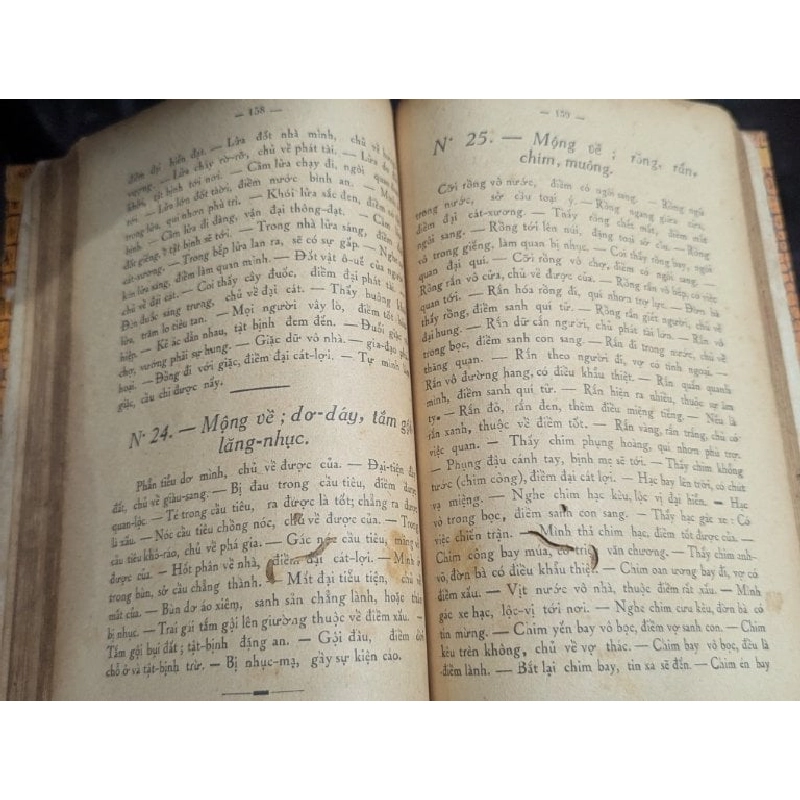 — 158 —
điềm đại hiển đạt. — Lửa đốt nhà mình, chủ về hưng
vượng. — Lửa cháy rờ-rỡ, chủ về phát tài. — Lửa đỏ
khói, tật bịnh tới nơi. — Cầm lửa chạy đi, ngôi quan
rọi. — Lửa đốt đời, điềm nước bình an. — Mình
trong lửa, quí nhơn phù trì. — Khói lửa sắc đen, điềm có tật
bịnh. — Cầm lửa đi đàng, vận đại thông-đạt. — Cầm
đốt giếng, tật bịnh sẽ tới. — Trong nhà lửa sáng, điềm đại
cát-xương. — Trong bếp lửa lan ra, sẽ có sự gấp. — Nghe
lửa sáng, điềm làm quan mình. — Đất vật ô-uế của người
chủ về đại cát. — Coi thấy cây đuốc, điềm đại phát tài.
Đèn đuốc sáng trưng, chủ về đại cát. — Thấy hướng
lửa, trăm lo tiêu tan. — Mọi người vây lò, điềm tốt
hiện. — Kẻ ác dẫn nhau, tật bịnh đem đến. — Đuổi giặc
chợ, vướng phải sự hung. — Giặc dữ vô nhà. — gia-đạo phá
hoại. — Đồng đi với giặc, điềm đại cát-lợi. — Tự mình làm
giặc, cầu chi được nấy.
N· 24. — Mộng về ; dơ-dáy, tắm gội
lăng-nhục.
Phẩn tiểu dơ mình, chủ về được của. — Đại-tiện đầy
đất, chủ về giàu-sang. — Bị đau trong cầu tiêu, điềm được
quan-lộc. — Té trong cầu tiêu, ra được là tốt; chẳng ra được
là xấu. — Nóc cầu tiêu chồng nóc, chủ về được của. — Trong
cầu tiêu khô-ráo, chủ về phá gia. — Gác nóc cầu tiêu, mừng về
được của. — Hốt phẩn về nhà, điềm đại cát-lợi. — Mình ở
trong bùn, sở cầu chẳng thành. — Mất đại tiểu tiện, chủ về
mất của. — Bùn dơ áo xiêm, sanh sản chẳng lành, hoặc thân
bị nhục. — Trai gái tắm gội lên giường thuộc về điềm xấu. —
Tắm gội bụi đất ; tật-bịnh đặng an. — Gội đầu, điềm dời
chỗ ở và tật-bịnh trừ. — Bị nhục-mạ, gây sự kiện cáo.
— 159 —
N· 25. — Mộng về ; rồng, rắn,
chim, muông.
Cỡi rồng vô nước, điềm có ngôi sang. — Rồng ngủ
trong nước, sở cầu toại ý. — Rồng ngang giữa cửa,
điềm đại cát-xương. — Thấy rồng chết mất, điềm mất
ngôi sang. — Rồng tới lên núi, đặng toại sở cầu. — Rồng
vô trong giếng, làm quan bị nhục. — Coi thấy rồng bay, ngôi
quan đại quí. — Cỡi rồng vô chợ, điềm có ngôi sang. —
Rồng rắn vô cửa, chủ về được của. — Rồng rắn vô bếp, có việc
quan tới. — Rắn hóa rồng đi, quí nhơn trợ lực. — Đơn bà
thấy rồng, điềm sanh quí tử. — Rồng rắn giết người, chủ về
đại hung. — Rắn dữ cắn người, chủ phát tài lớn. — Rắn vô
trong bọc, điềm sanh con sang. — Rắn đi trong nước, chủ về
thăng quan. — Rắn theo người đi, vợ có tình ngoại. —
Rắn vô đường hang, có điều khẩu thiệt. — Rắn quấn quanh
mình, điềm sanh quí tử. — Rắn hiện ra nhiều, thuộc sự âm
ty. — Rắn đỏ, rắn đen, thêm điều miệng tiếng. — Nếu là
rắn xanh, thuộc về điềm tốt. — Rắn vàng, rắn trắng, chủ có
việc quan. — Thấy chim phụng hoàng, quí nhơn phù trợ.
— Phụng đậu cánh tay, bịnh mẹ sẽ tới. — Thấy chim khổng
tước (chim công), điềm đại cát lợi. — Hạc bay lên trời, có chút
vạ miệng. — Nghe chim hạc kêu, lộc vị đại hiển. — Hạc
vô trong bọc, điềm sanh con sang. — Thấy hạc gác xe : Có
việc chiến trận. — Mình thả chim hạc, điềm tốt được của. —
Chim công bay múa, có trí văn chương. — Thấy chim anh-
võ, đờn bà có điều khẩu thiệt. — Chim oan ương bay đi, vợ có
điềm xấu. — Vịt nước vô nhà, thuộc điềm rất xấu. — Mình
gác xe hạc, lộc-vị tới nơi. — Nghe chim cưu kêu, đờn bà có
tin mừng. — Chim yến bay vô bọc, điềm vợ sanh con. — Chim
kêu trên không, chủ về vợ thác. — Chim bay vô bọc, đều là
điềm lành. — Bắt lại chim bay, tin xa sẽ đến. — Chim én bay